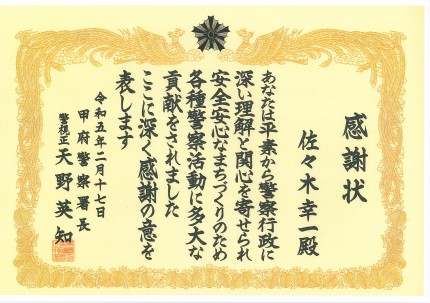 感謝状
佐々木幸一殿
あなたは平素から警察行政に
深い理解と関心を寄せられ
安全安心なまちづくりのため
各種警察活動に多大な
貢献をされました
ここに深く感謝の意を
表します
令和五年二月十七日
甲府警察署長
警視正 天野英知